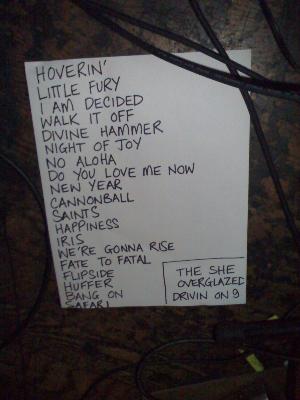 HOVERIN'
LITTLE FURY
I AM DECIDED
WALK IT OFF
DIVINE HAMMER
NIGHT OF JOY
NO ALOHA
DO YOU LOVE ME NOW
NEW YEAR
CANNONBALL
SAINTS
HAPPINESS
IRIS
WE'RE GONNA RISE
FATE TO FATAL
FLIPSIDE
HUFFER
BANG ON
SAFARI
THE SHE
OVERGLAZED
DRIVIN ON 9